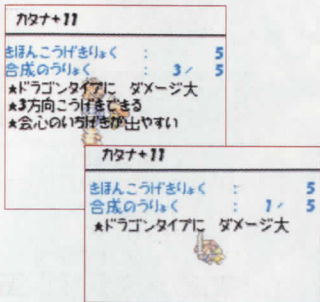 カタナ+11
きほんこうげきりょく : 5
合成のうりょく : 3/ 5
★ドラゴンタイプに ダメージ大
★3方向こうげきできる
★会心のいちげきが出やすい
カタナ+11
きほんこうげきりょく : 5
合成のうりょく : 1/ 5
★ドラゴンタイプに ダメージ大